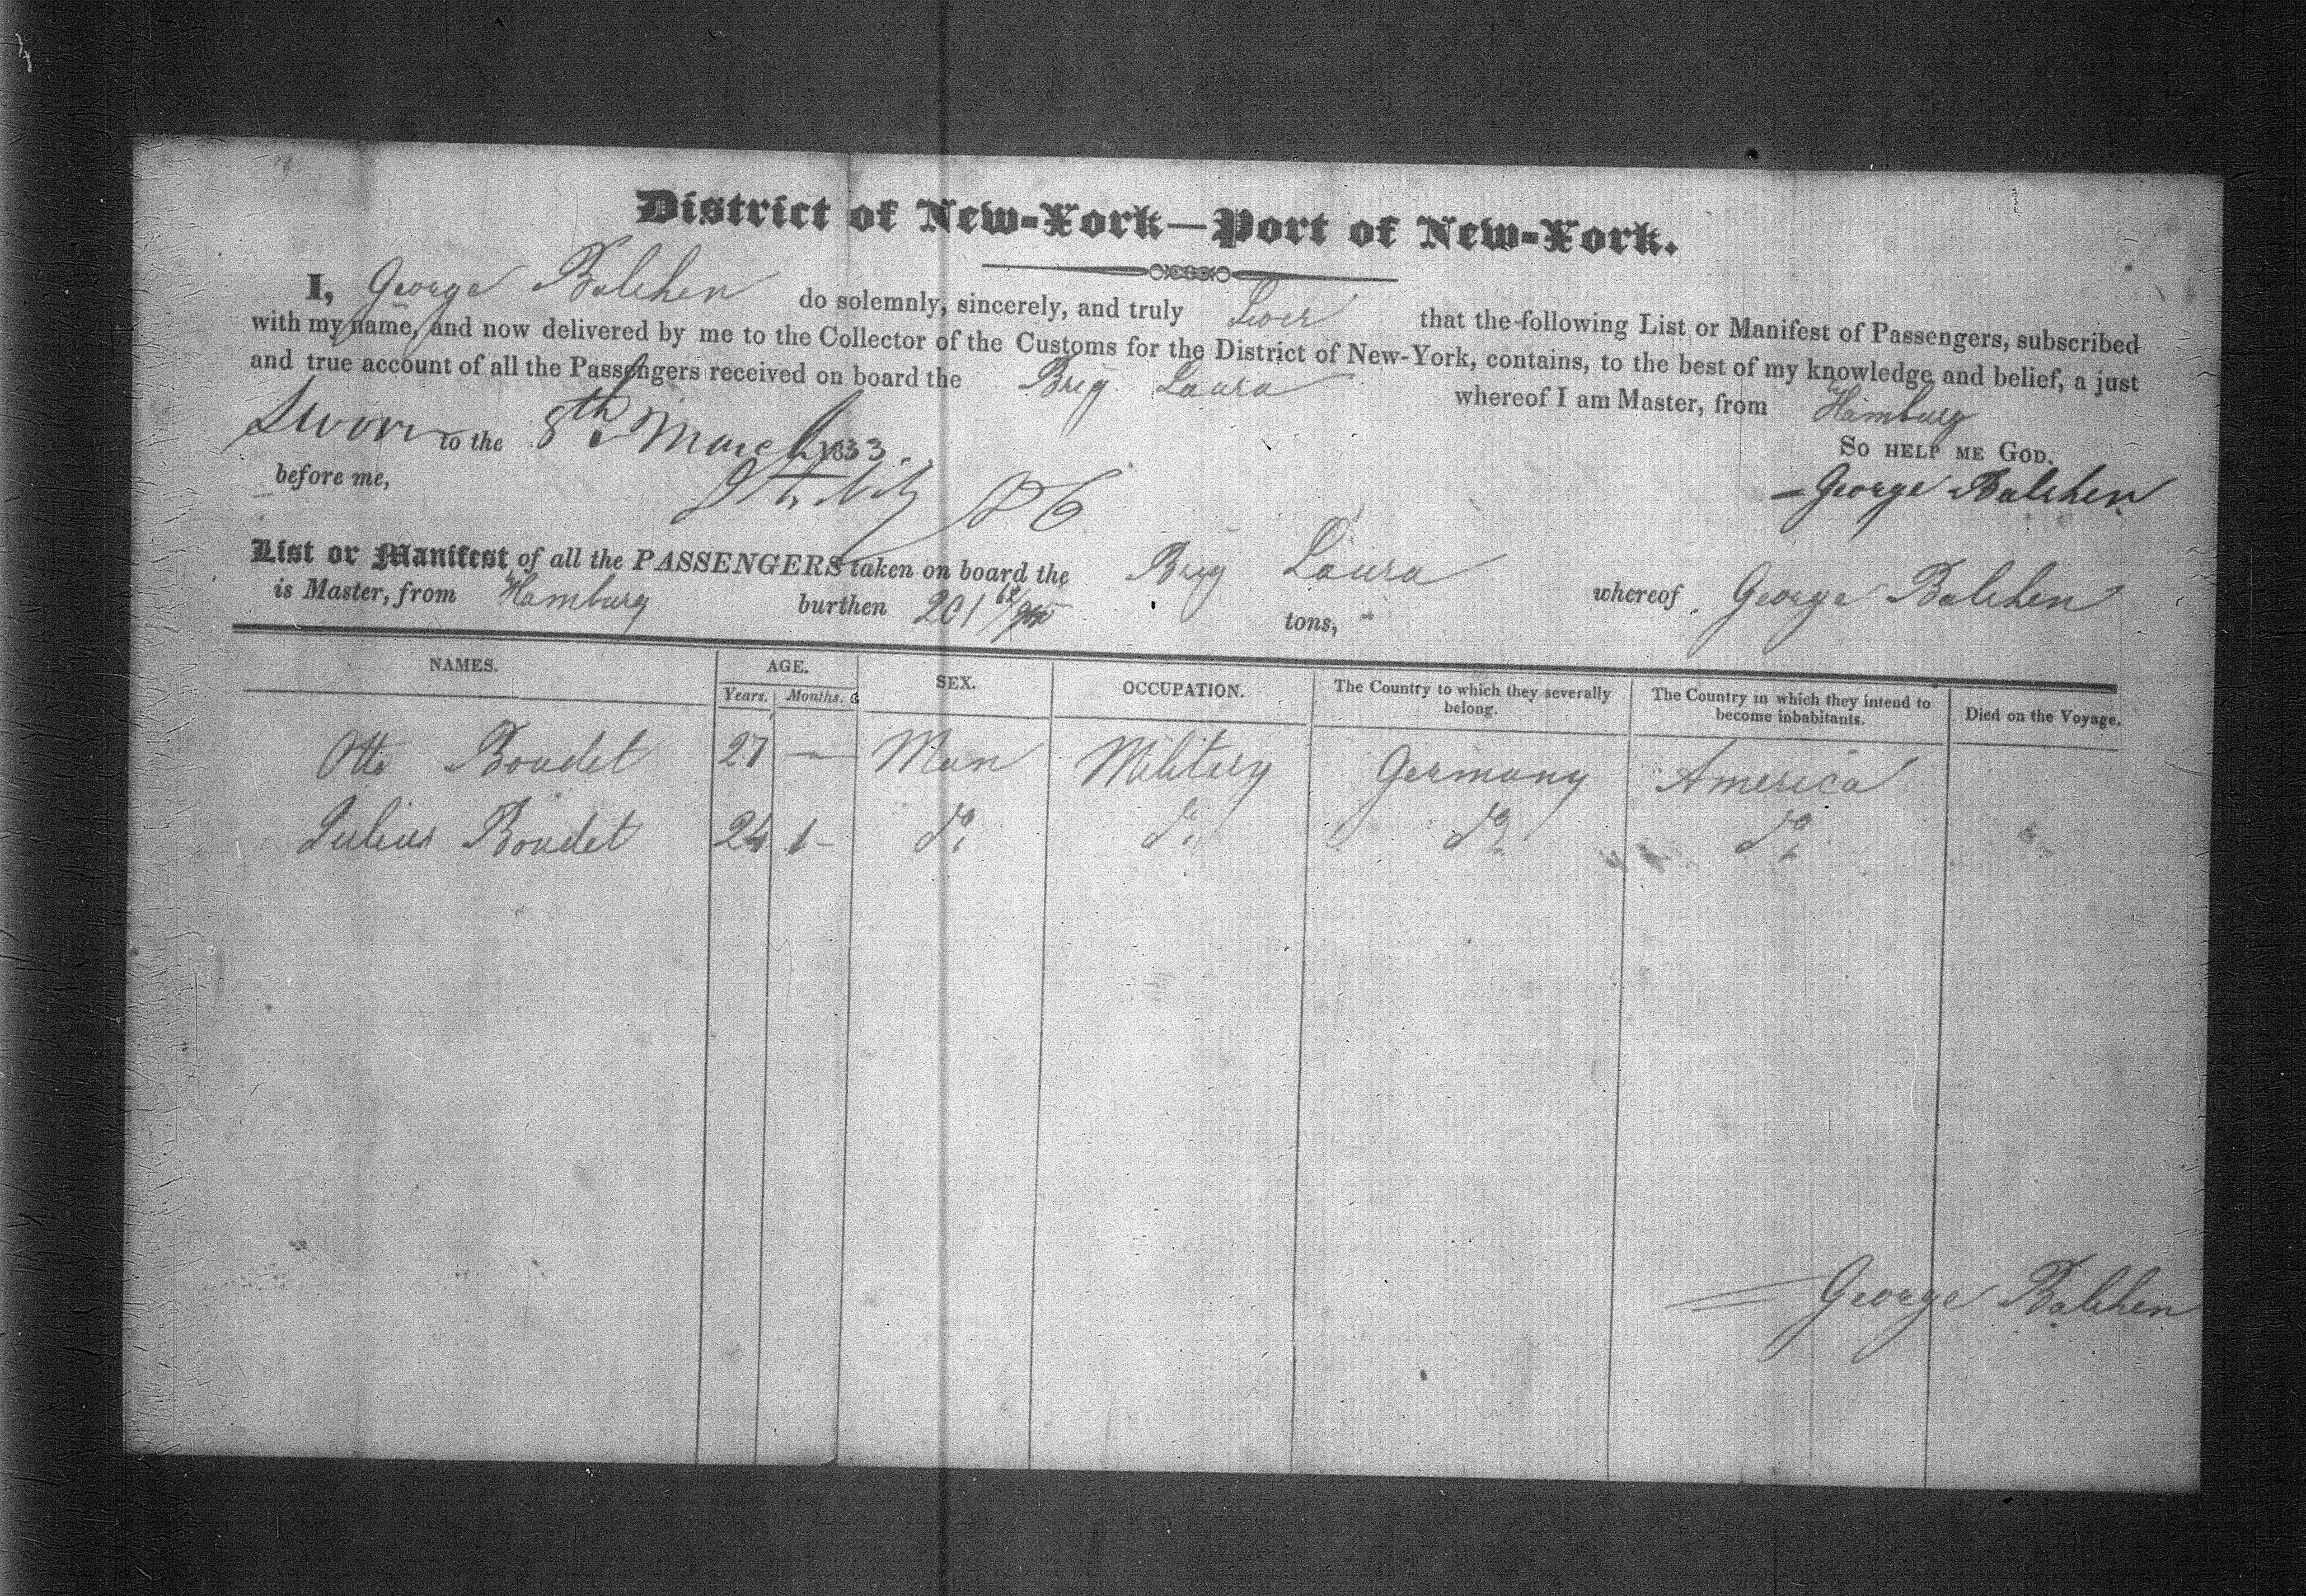 District of New-York—Port of New-York.
I, George Balchen do solemnly, sincerely, and truly Swear that the following List or Manifest of Passengers, subscribed
with my name, and now delivered by me to the Collector of the Customs for the District of New-York, contains, to the best of my knowledge and belief, a just
and true account of all the Passengers received on board the Brig Laura whereof I am Master, from Hamburg
Sworn to the 8th March 1833.
So help me God.
before me,
George Balchen
List or Manifest of all the PASSENGERS taken on board the Brig Laura whereof George Balchen
is Master, from Hamburg burthen 201 62/95 tons,
NAMES. AGE. SEX. OCCUPATION. The Country to which they severally belong. The Country in which they intend to become inhabitants. Died on the Voyage.
Years. Months.
Otto Boudet 27 — Man Military Germany America
Julius Boudet 24 1 - do. do. do. do.
George Balchen